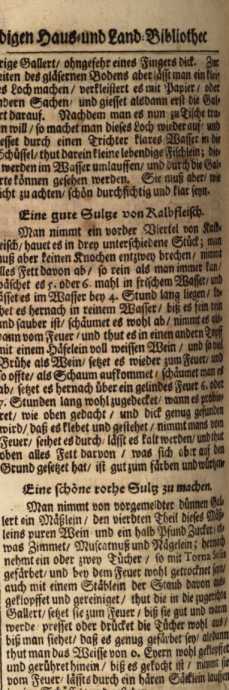 digen Haus-und Land-Bibliothec
rige Gallert/ ohngefehr eines Fingers dick. Zur
eiten des gläsernen Bodens aber lässt man ein klei-
es Loch machen/ verkleistert es mit Papier/ oder
andern Sachen/ und giesset alsdann erst die Gal-
rt darauf. Nachdem man es nun zu Tische tra-
en will/ so machet man dieses Loch wieder auf/ und
esset durch einen Trichter klares Wasser in die
Schüssel/ thut darein kleine lebendige Fischlein; die
werden im Wasser umlauffen/ und durch die Gal-
rte können gesehen werden. Sie muß aber/ wie
icht zu achten/ schön durchsichtig und klar seyn.
Eine gute Sulze von Kalbfleisch.
Man nimmt ein vorder Viertel von Kalb-
eisch/ hauet es in drey unterschiedene Stück; man
muß aber keinen Knochen entzwey brechen/ nimmt
lles Fett davon ab/ so rein als man immer kan/
wäschet es 5. oder 6. mahl in frischem Wasser/ und
lässet es im Wasser bey 4. Stund lang liegen/
het es hernach in reinem Wasser/ biß es fein
und sauber ist/ schäumet es wohl ab/ nimmt es als-
dann vom Feuer/ und thut es in einen andern Topf
mit einem Häfelein voll weissen Wein/ und so viel
Brühe als Wein/ setzet es wieder zum Feuer/ und
so offte/ als Schaum aufkommet/ schäumet man es
ab/ setzet es hernach über ein gelindes Feuer 6. oder
7. Stunden lang wohl zugedecket/ wann es
ret/ wie oben gedacht/ und dick genug gefunden
wird/ daß es klebet und gestehet/ nimmt mans vom
Feuer/ seihet es durch/ lässt es kalt werden/ und thut
oben alles Fett darvon/ was sich aber auf den
Grund gesetzet hat/ ist gut zum färben und würtzen.
Eine schöne rothe Sultz zu machen.
Man nimmt von vorgemeldter dünnen Gal-
lert ein Mäßlein/ den vierdten Theil dieses Mäß-
leins puren Wein und ein halb Pfund Zucker/ et-
was Zimmet/ Muscatnuß und Nägelein; hernach
nehmt ein oder zwey Tücher/ so mit Torna Solis
gefärbet/ und bey dem Feuer wohl getrocknet seyn/
auch mit einem Stäblein der Staub davon aus-
geklopffet und gereiniget/ thut die in die zugerichte
Gallert/ setzet sie zum Feuer/ biß sie gut und warm
werde presset oder drücket die Tücher wohl aus/
biß man siehet/ daß es genug gefärbet sey/ alsdann
thut man das Weisse von 6. Eyern wohl geklopffet
und gerühret hinein/ biß es gekocht ist/ nimmt sie
vom Feuer/ lässts durch ein hären Säcklein lauffen